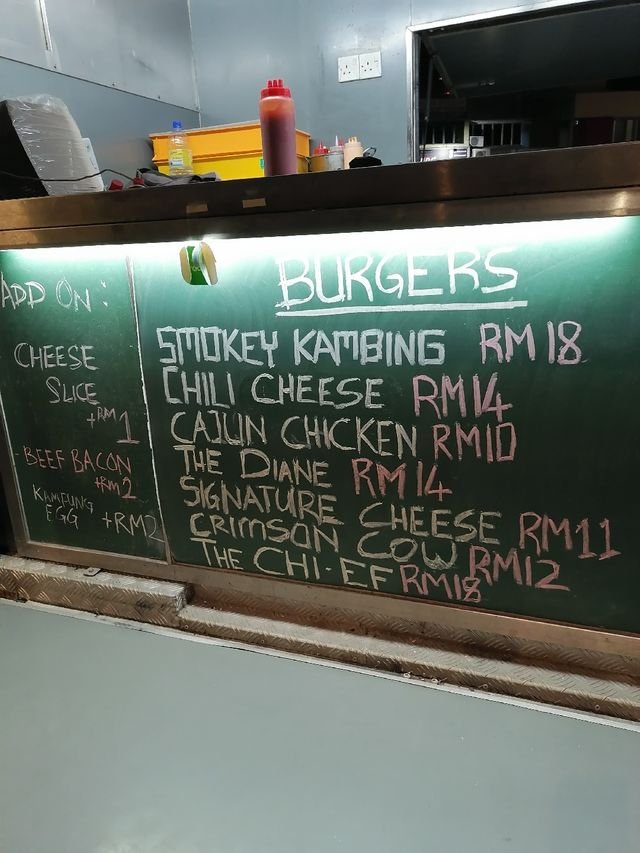 ADD ON:
CHEESE
SLICE
+RM1
BEEF BACON
+RM2
KAMPUNG
EGG +RM2
BURGERS
SMOKEY KAMBING RM18
CHILI CHEESE RM14
CAJUN CHICKEN RM10
THE DIANE RM14
SIGNATURE CHEESE RM11
CRIMSON COW RM12
THE CHI-EF RM18